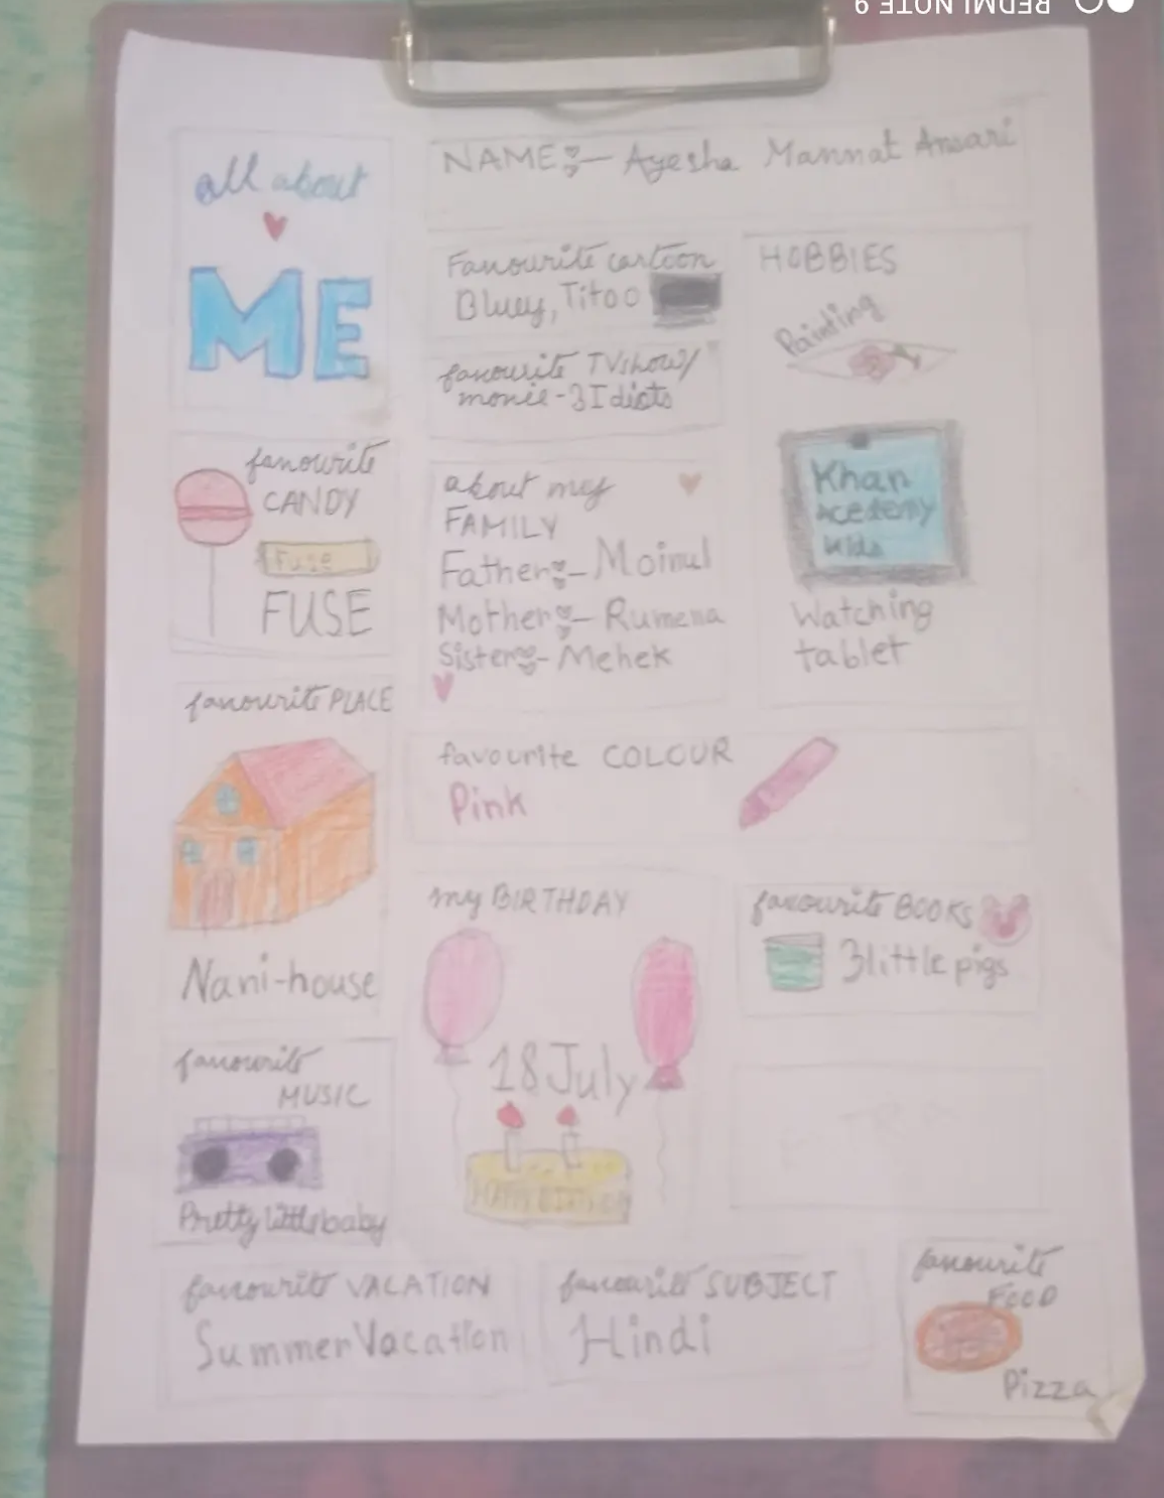 REDMI NOTE 9
all about
ME
NAME:- Ayesha Mannat Ansari
Favourite cartoon
Bluey, Titoo
favourite TV show/
movie-3 Idiots
HOBBIES
Painting
Khan
Acedemy
kids
Watching
tablet
favourite
CANDY
Fuse
FUSE
about my
FAMILY
Father:- Moinul
Mother:- Rumena
Sister:- Mehek
favourite PLACE
Nani-house
favourite COLOUR
Pink
my BIRTHDAY
18 July
HAPPY BIRTHDAY
favourite BOOKS
3 little pigs
favourite
MUSIC
Pretty little baby
favourite VACATION
Summer Vacation
favourite SUBJECT
Hindi
favourite
FOOD
Pizza